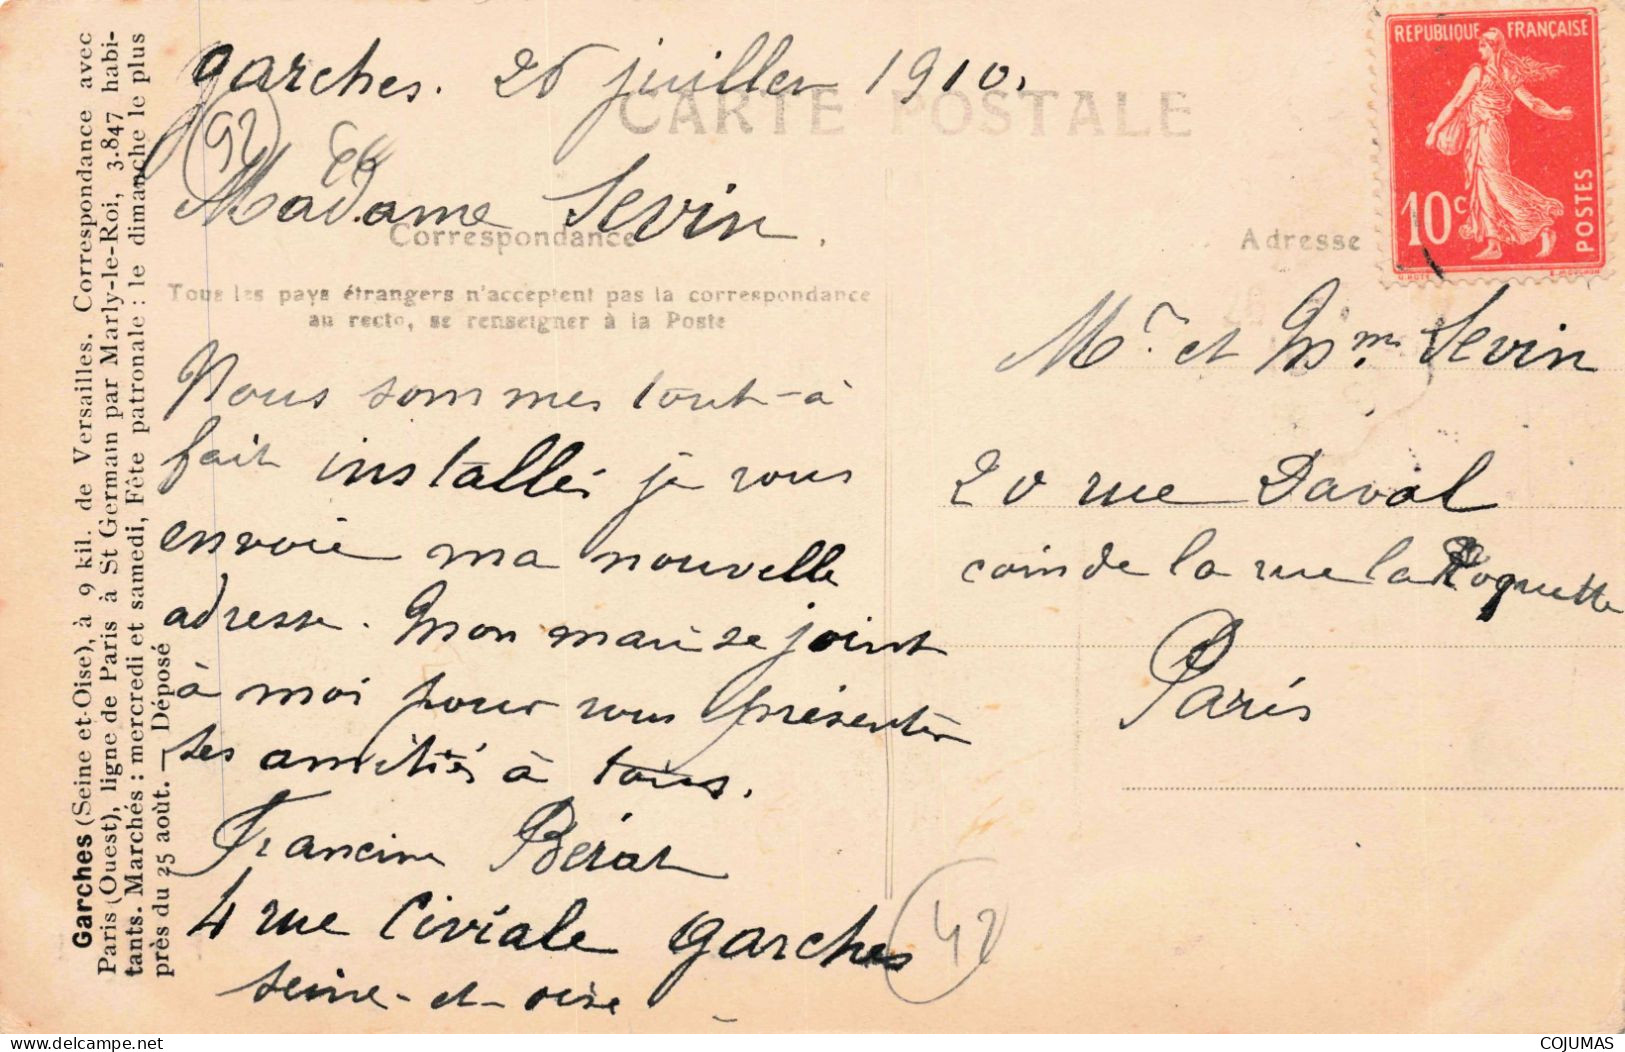 Garches (Seine et-Oise), à 9 kil. de Versailles. Correspondance avec
Paris (Ouest), ligne de Paris à St Germain par Marly-le-Roi, 3.847 habi-
tants. Marchés : mercredi et samedi, Fête patronale : le dimanche le plus
près du 25 août. — Déposé
garches. 26 juillet 1910.
CARTE POSTALE
92
Madame Sevin.
Correspondance
Tous les pays étrangers n'acceptent pas la correspondance
au recto, se renseigner à la Poste
Nous sommes tout-à
fait installés je vous
envoie ma nouvelle
adresse. Mon mari se joint
à moi pour vous présenter
ses amitiés à tous.
Francine Bérat
4 rue Civiale garches
seine-et-oise
42
REPUBLIQUE FRANÇAISE
10c
POSTES
Adresse
Mr. et Mme Sevin
20 rue Daval
coin de la rue la Roquette
Paris
COJUMAS